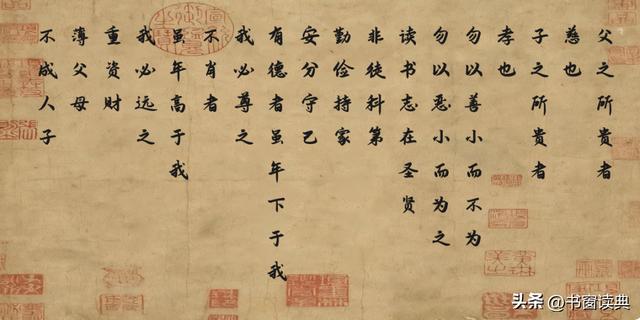 父之所貴者
慈也
子之所貴者
孝也
勿以善小而不为
勿以恶小而为之
读书志在圣贤
非徒科第
勤俭持家
安分守己
有德者虽年下于我
我必尊之
不肖者
虽年高于我
我必远之
重资财
薄父母
不成人子
头条 @书窗读典